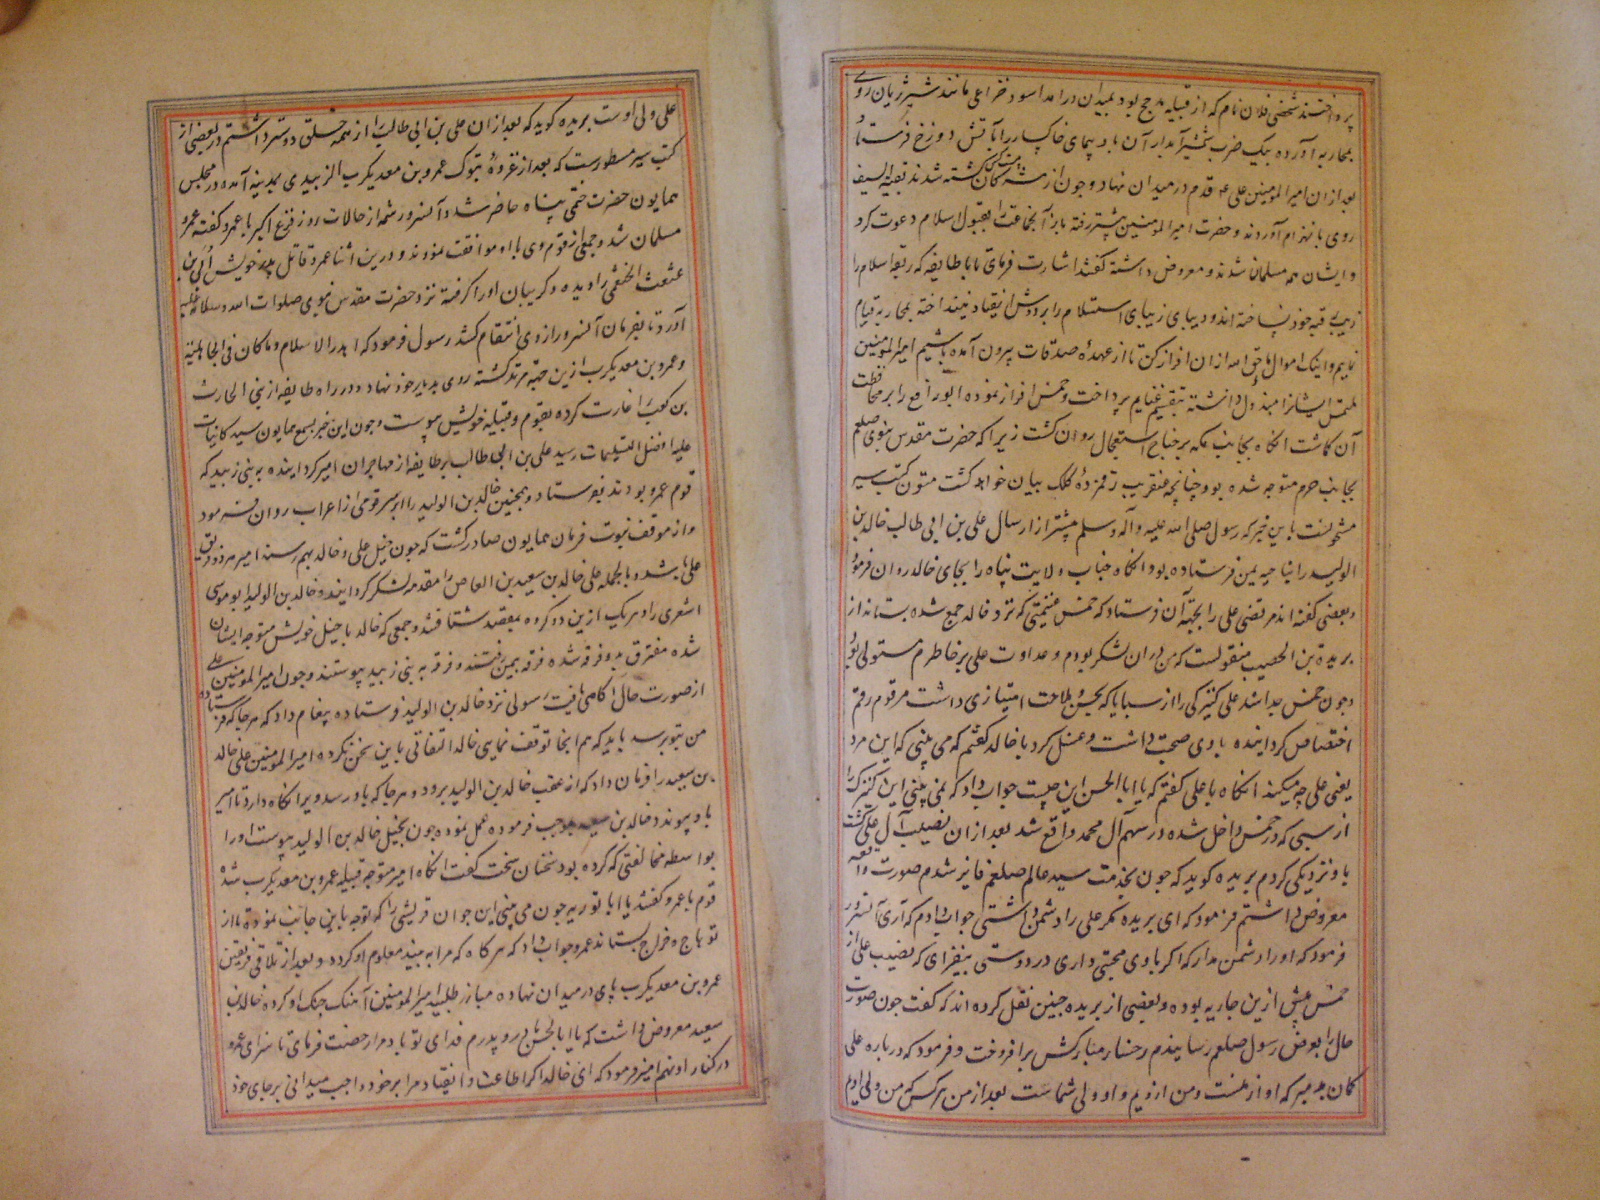 پرداختند شخصی فلان نام که از قبیله مذحج بود بمیدان درامد اسود خزاعی مانند شیر ژیان روی
بمحاربه آورده بیک ضرب شمشیر آبدار آن باد پیمای خاکسار را بآتش دوزخ فرستاد
بعد ازان امیر المومنین علی قدم در میدان نهاد و چون از مشرکان کشته شدند بقیة السیف
روی بانهزام آوردند و حضرت امیر المومنین پیشتر رفته باز آنجماعت را بقبول اسلام دعوت کرد
و ایشان همه مسلمان شدند و معروض داشته گفتند اشارت فرمای تا با طایفه که ربقه اسلام را
زیب رقبه خود نساخته اند و دیبای زیبای استسلام را بر دوش انقیاد نینداخته بمحاربه قیام
نماییم و اینک اموال ما حق الله ازان افراز کن تا از عهدهٔ صدقات بیرون آمده باشیم امیر المومنین
ملتمس ایشانرا مبذول داشته بتقسیم غنایم پرداخت و خمس افراز نموده ابو رافع را بر محافظت
آن گماشت انگاه بجانب مکه بر جناح استعجال روان گشت زیرا که حضرت مقدس نبوی صلعم
بجانب حرم متوجه شده بود چنانچه عنقریب رقمزدهٔ کلک بیان خواهد گشت متون کتب سیر
مشحونست باین خبر که رسول صلی الله علیه و آله و سلم پیشتر از ارسال علی بن ابی طالب خالد بن
الولید را بناحیه یمن فرستاده بود و انگاه جناب ولایت پناه را بجای خالد روان فرمود
و بعضی گفته اند مرتضی علی را بجهة آن فرستاد که خمس غنیمتی که نزد خالد جمع شده بستاند از
بریدة بن الحصیب منقولست که من دران لشکر بودم و عداوت علی بر خاطرم مستولی بود
و چون خمس جدا شد علی کنیزکی را از سبایا که بحسن و ملاحت امتیازی داشت مرقوم رقم
اختصاص گردانیده با وی صحبت داشت و غسل کرد با خالد گفتم که می بینی که این مرد
یعنی علی چه میکند انگاه با علی گفتم که یا ابا الحسن این چیست جواب داد که نمی بینی این کنیزک را
از سبی که در خمس داخل شده در سهم آل محمد واقع شد بعد ازان نصیب آل علی گشت
با او نزدیکی کردم بریده گوید که چون بخدمت سید عالم صلعم فایز شدم صورت واقعه
معروض داشتم فرمود که ای بریده مگر علی را دشمن داشتی جواب دادم که آری آنسرور
فرمود که او را دشمن مدار که اگر با وی محبتی داری در دوستی بیفزای که نصیب علی از
خمس بیش ازین جاریه بوده و بعضی از بریده چنین نقل کرده اند که گفت چون صورت
حال را بعرض رسول صلعم رسانیدم رخسار مبارکش برافروخت و فرمود که درباره علی
گمان بد مبر که او از منست و من ازویم و او ولی شماست بعد از من هر کس که من ولی اویم
علی ولی اوست بریده گوید که بعد ازان علی بن ابی طالب را از همه خلق دوستر داشتم در بعضی از
کتب سیر مسطورست که بعد از غزوهٔ تبوک عمرو بن معدیکرب الزبیدی بمدینه آمده در مجلس
همایون حضرت ختمی پناه حاضر شد و آنسرور شمه از حالات روز فزع اکبر با عمرو گفته عمرو
مسلمان شد و جمعی از قوم وی با او موافقت نمودند و درین اثنا عمرو قاتل پدر خویش ابی بن
عثعث الخثعمی را دیده و گریبان او را گرفته نزد حضرت مقدس نبوی صلوات الله و سلامه علیه
آورد تا بفرمان آنسرور از وی انتقام کشد رسول فرمود که اهدر الاسلام ما کان فی الجاهلیة
و عمرو بن معدیکرب ازین جهة مرتد گشته روی بدیار خود نهاد و در راه طایفه از بنی الحارث
بن کعب را غارت کرده بقوم و قبیله خویش پیوست و چون این خبر بسمع همایون سید کاینات
علیه افضل التسلیمات رسید علی بن ابی طالب بر طایفه از مهاجران امیر گردانیده به بنی زبید که
قوم عمرو بودند بفرستاد و همچنین خالد بن الولید را بر سر قومی از اعراب روان فرمود
و از موقف نبوت فرمان همایون صادر گشت که چون خیل علی و خالد بهم رسند امیر هر دو فریق
علی باشد و بالجمله علی خالد بن سعید بن العاص را مقدمه لشکر گردانید و خالد بن الولید ابو موسی
اشعری را و هر یک ازین دو گروه بمقصد شتافتند و جمعی که خالد با خیل خویش متوجه ایشان
شده متفرق بدو فرقه شده فرقه بیمن رفتند و فرقه به بنی زبید پیوستند و چون امیر المومنین علی
از صورت حال آگاهی یافت رسولی نزد خالد بن الولید فرستاده پیغام داد که هر جا که فرستاده
من بتو برسد باید که هم انجا توقف نمایی خالد التفاتی باین سخن نکرده امیر المومنین علی خالد
بن سعید را فرمان داد که از عقب خالد بن الولید برود و هر جا که باو رسد ویرا نگاه دارد تا امیر
باو پیوندد خالد بن سعید بموجب فرموده عمل نموده چون بخیل خالد بن الولید پیوست او را
بواسطه مخالفتی که کرده بود سخنان سخت گفت انگاه امیر متوجه قبیله عمرو بن معدیکرب شد
قوم با عمرو گفتند یا ابا ثور چون می بینی این جوان قریشی را که توجه باین جانب نموده تا از
تو باج و خراج بستاند عمرو جواب داد که هر گاه که مرا به بیند معلوم او گردد و بعد از تلاقی فریقین
عمرو بن معدیکرب پای در میدان نهاده مبارز طلبید امیر المومنین آهنگ جنک او کرده خالد بن
سعید معروض داشت که یا ابا الحسن مادر و پدرم فدای تو باد مرا رخصت فرمای تا سزای عمرو
در کنار او نهم امیر فرمود که ای خالد اگر اطاعت و انقیاد مرا بر خود واجب میدانی بر جای خود